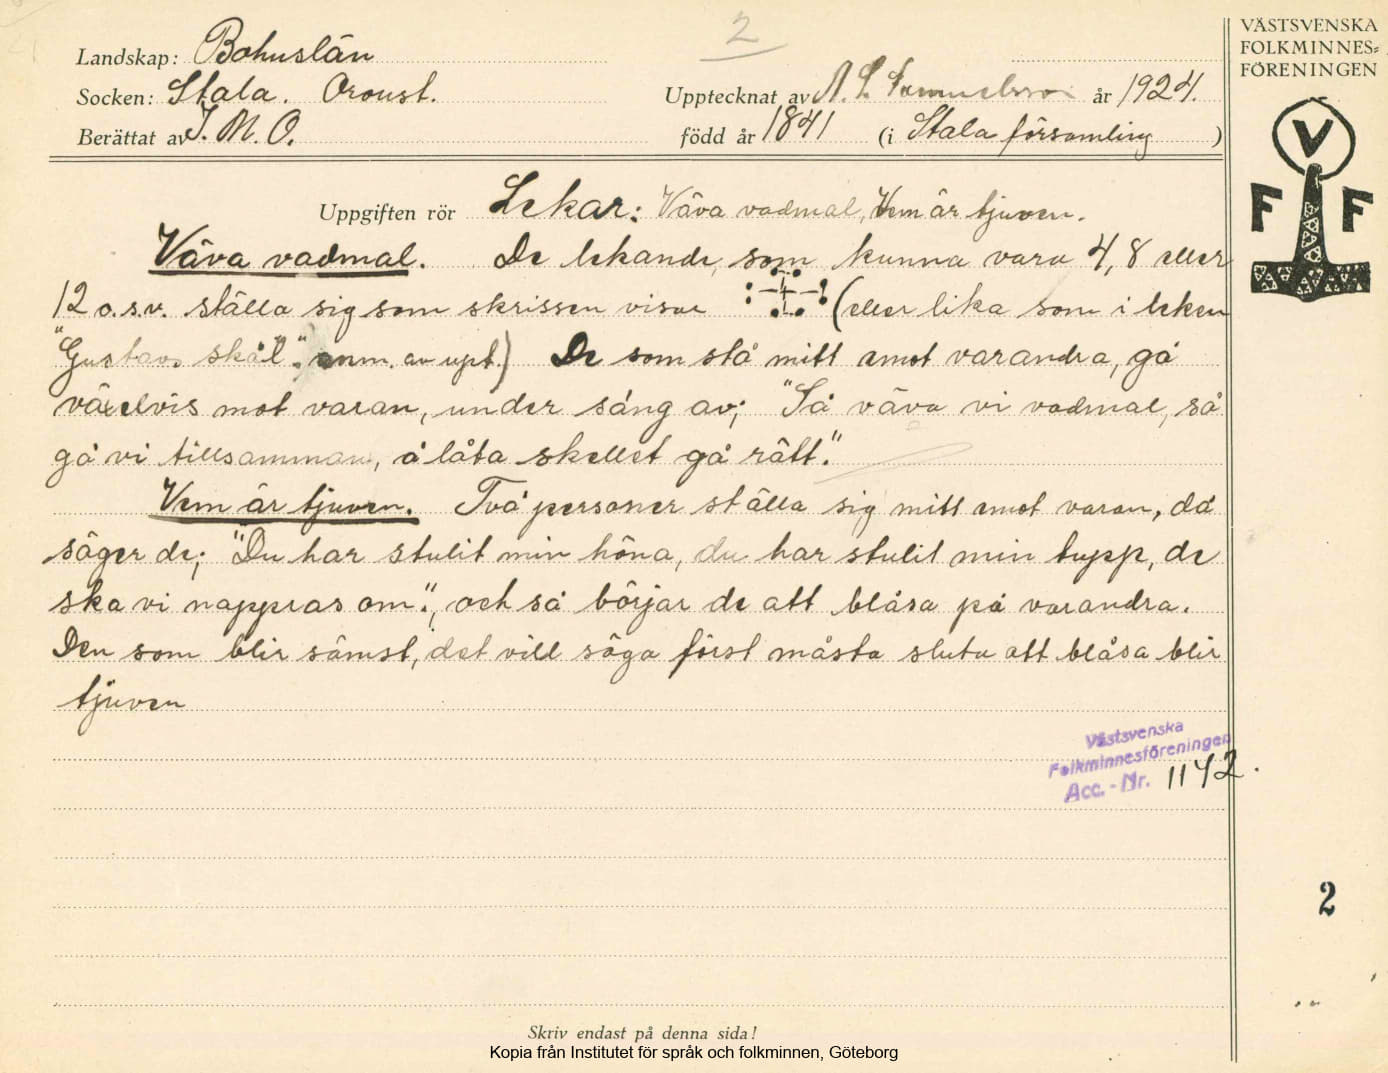 2
VÄSTSVENSKA
FOLKMINNES=
FÖRENINGEN
Landskap: Bohuslän
Socken: Stala. Oroust.
Upptecknat av A. S. Samuelsson år 1924.
Berättat av J. M. O.
född år 1841 (i Stala församling)
V
F F
Uppgiften rör Lekar: Väva vadmal, Vem är tjuven.
Väva vadmal. De lekande, som kunna vara 4, 8 eller
12 o.s.v. ställa sig som skrissen visar (eller lika som i leken
"Gustavs skål". anm. av upt.) De som stå mitt emot varandra, gå
växelvis mot varan, under sång av; "Så väva vi vadmal, så
gå vi tillsamman, å låta skellet gå rätt."
Vem är tjuven. Två personer ställa sig mitt emot varan, då
säger de; "Du har stulit min höna, du har stulit min tupp, de
ska vi nappras om.", och så börjar de att blåsa på varandra.
Den som blir sämst, det vill säga först måsta sluta att blåsa blir
tjuven
Västsvenska
Folkminnesföreningen
Acc.-Nr. 1142.
2
Skriv endast på denna sida!
Kopia från Institutet för språk och folkminnen, Göteborg